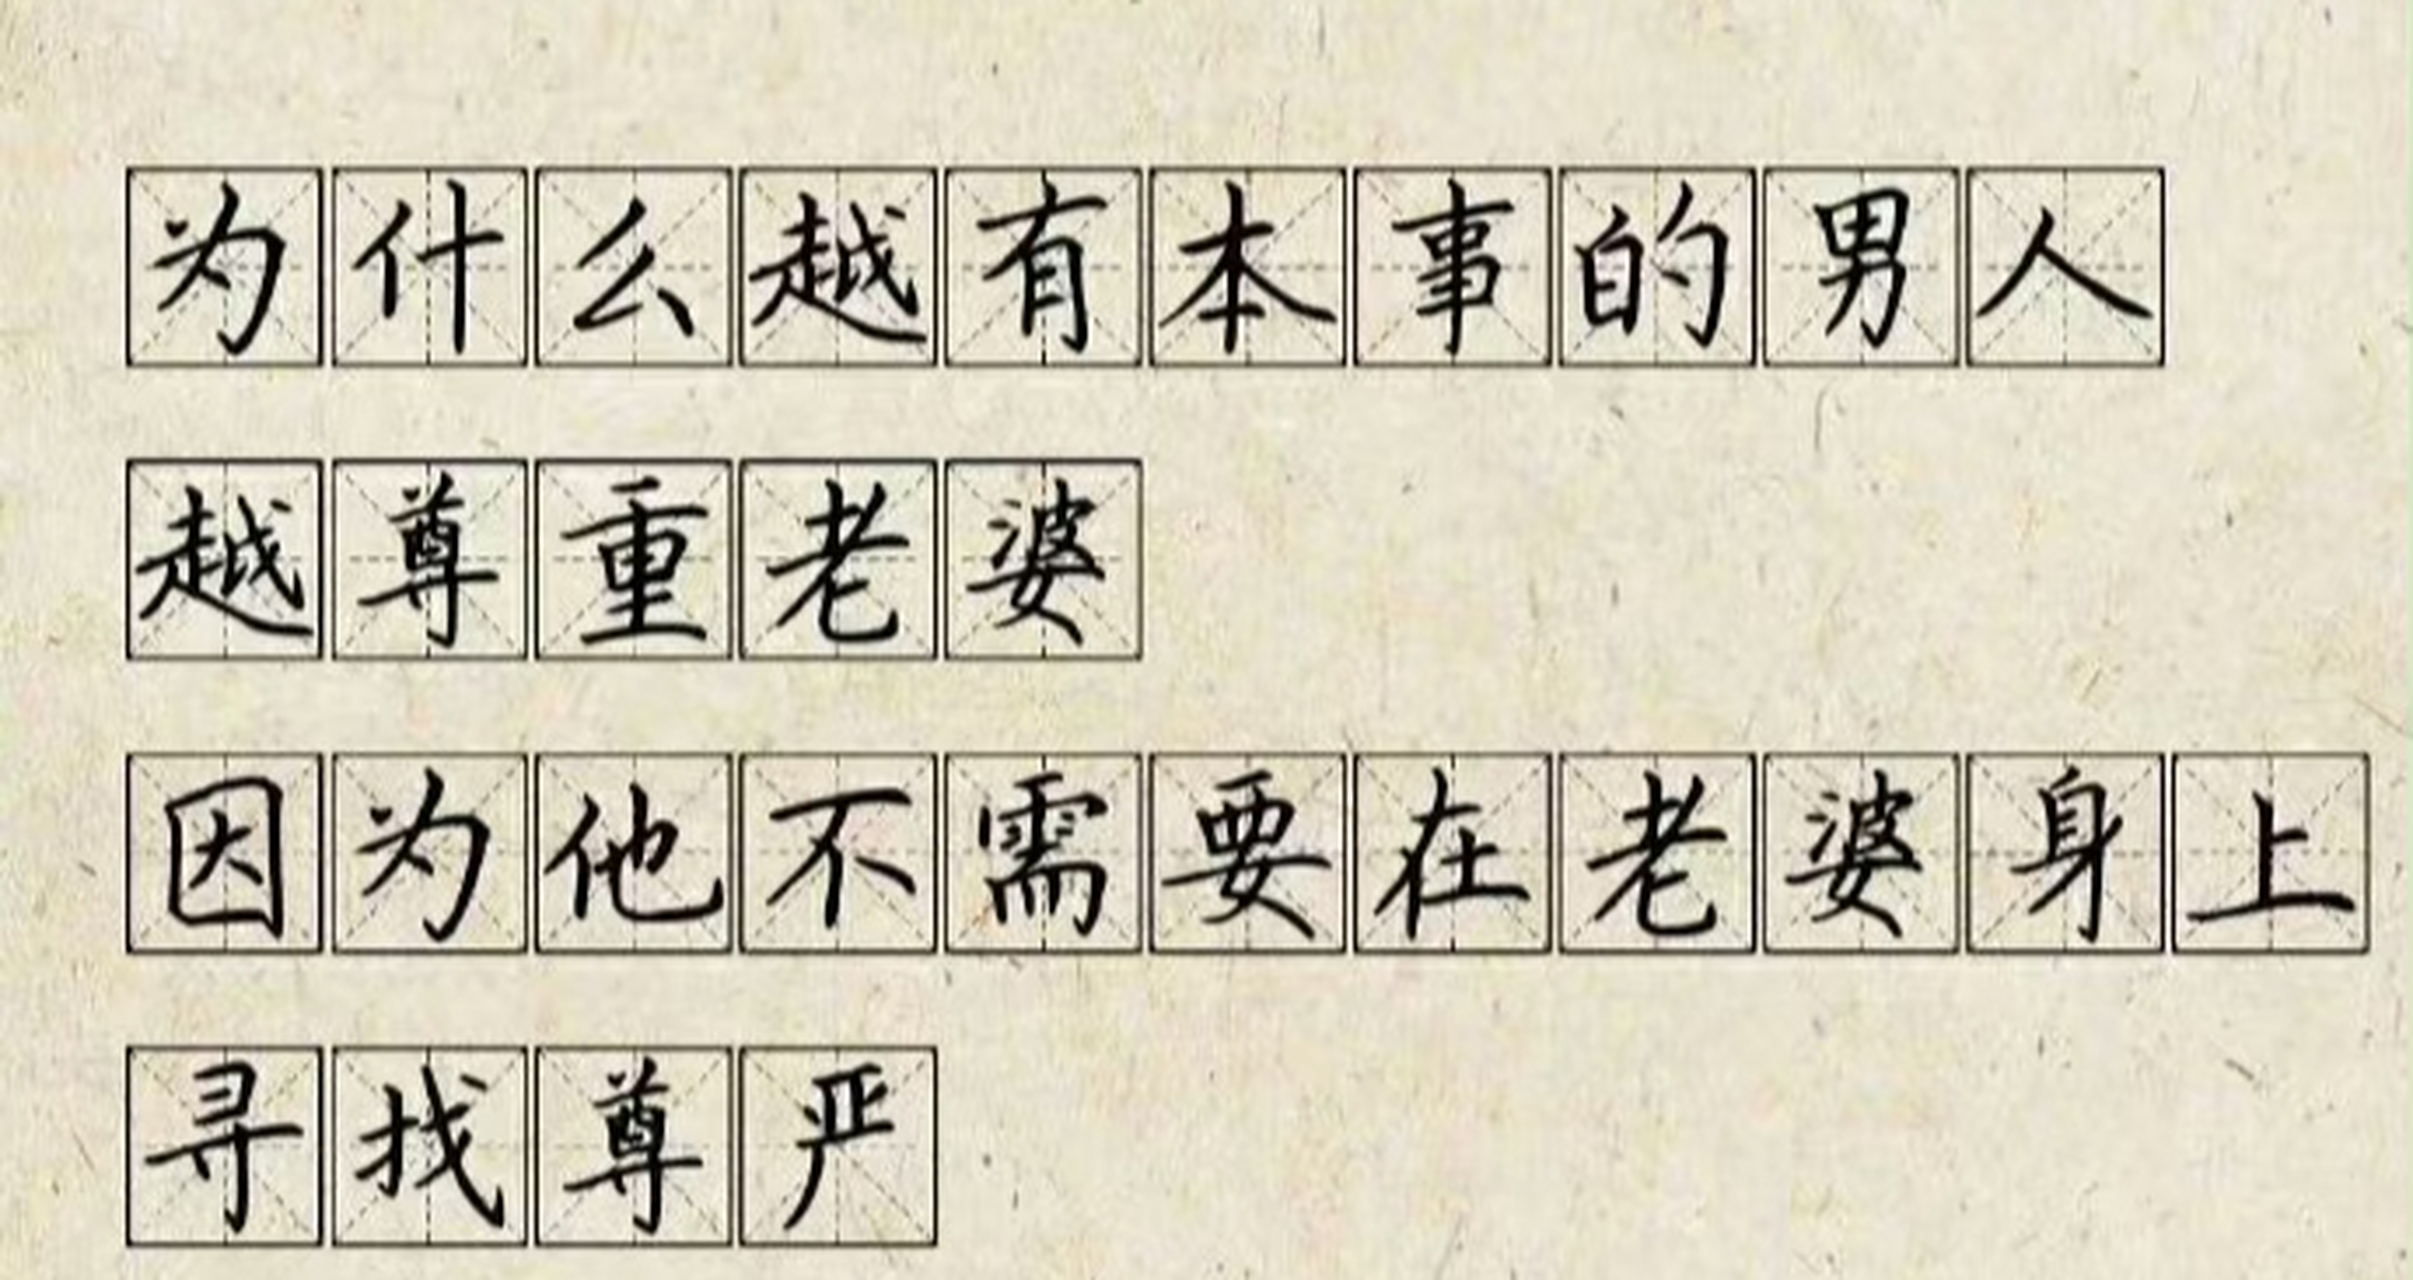 为什么越有本事的男人
越尊重老婆
因为他不需要在老婆身上
寻找尊严